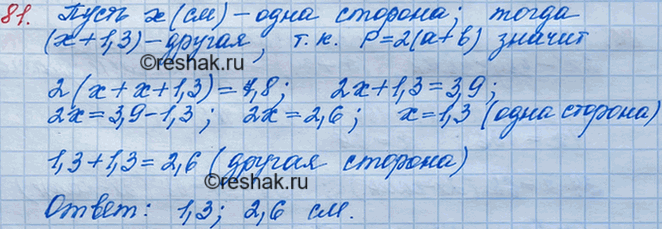 81. Пусть x (см) - одна сторона; тогда
(x+1,3) - другая, т.к. P=2(a+b) значит
©Reshak.ru
2(x+x+1,3)=7,8; 2x+1,3=3,9;
2x=3,9-1,3; 2x=2,6; x=1,3 (одна сторона)
1,3+1,3=2,6 (другая сторона)
reshak.ru
Ответ: 1,3; 2,6 см.